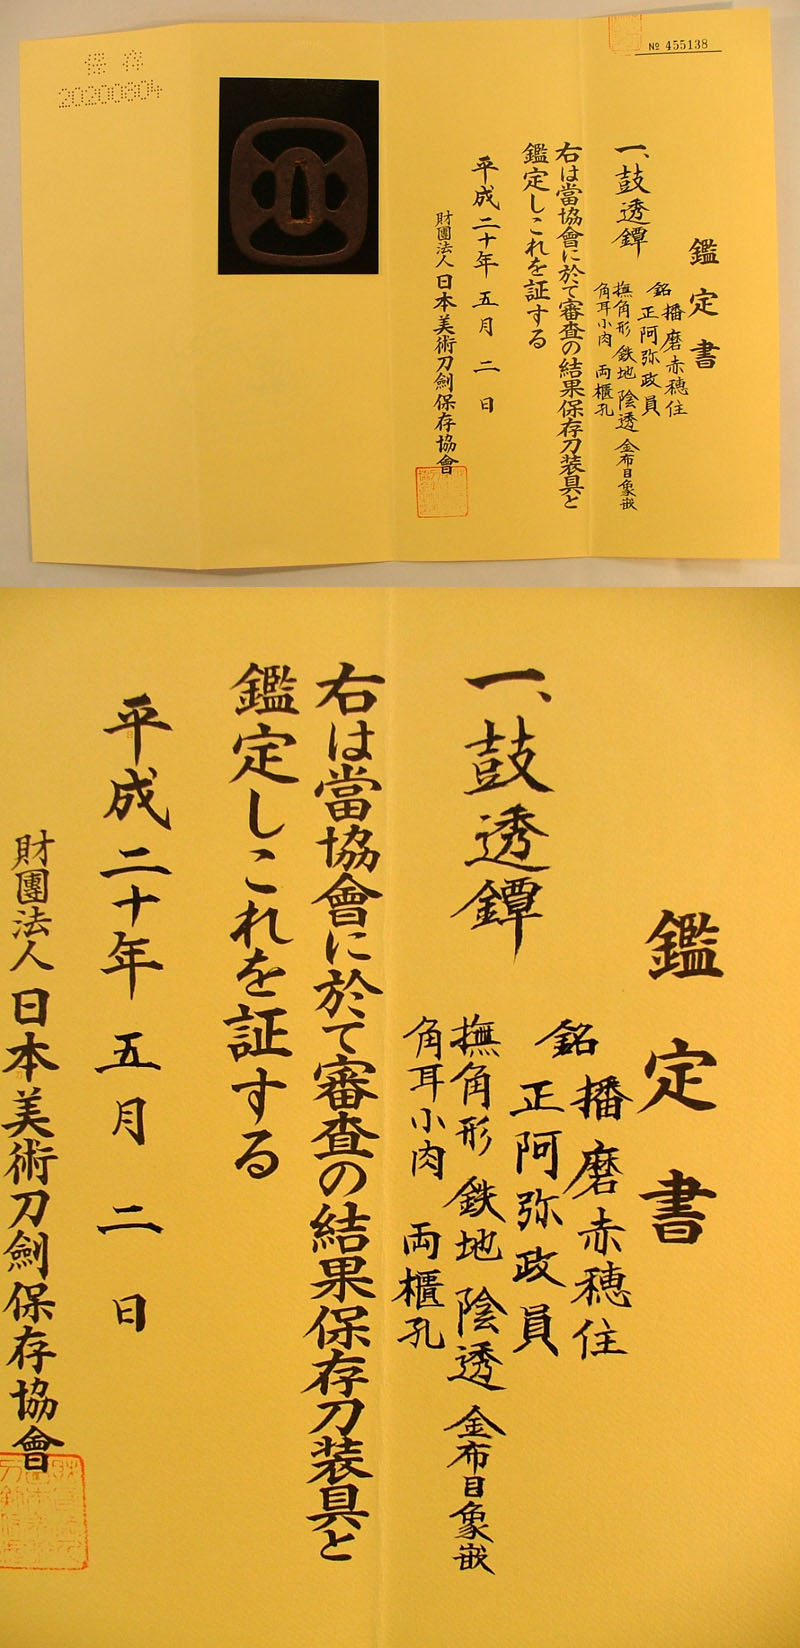 № 455138
鑑定書
一、鼓透鐔
銘 播磨赤穂住
正阿弥政員
撫角形 鉄地 陰透 金布目象嵌
角耳小肉 両櫃孔
右は當協會に於て審査の結果保存刀装具と
鑑定しこれを証する
平成二十年五月二日
財團法人日本美術刀劍保存協會
保存
20200804
鑑定書
一、鼓透鐔
銘 播磨赤穂住
正阿弥政員
撫角形 鉄地 陰透 金布目象嵌
角耳小肉 両櫃孔
右は當協會に於て審査の結果保存刀装具と
鑑定しこれを証する
平成二十年五月二日
財團法人日本美術刀劍保存協會